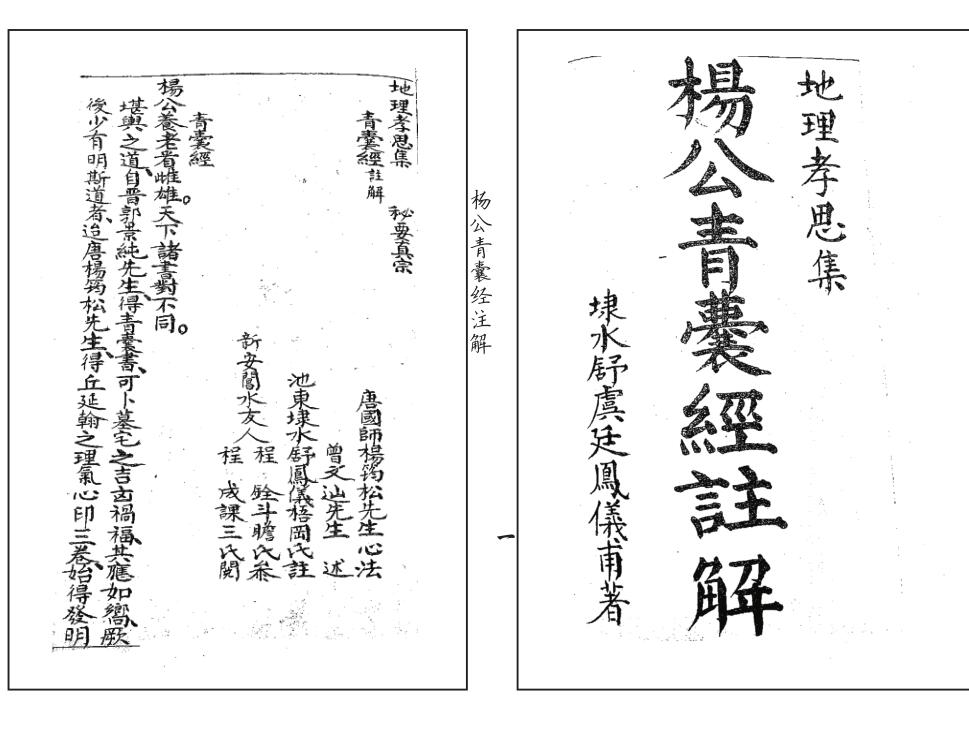 地理孝思集
楊公青囊經註解
埭水舒虞廷鳳儀甫著
杨公青囊经注解
一
地理孝思集 秘要真宗
青囊經註解
唐國師楊筠松先生心法
曾文辿先生 述
池東埭水舒鳳儀梧岡氏註
新安閶水友人
程 銓斗瞻氏叅
程 成課三氏閱
青囊經
楊公養老看雌雄。天下諸書對不同。
堪輿之道、自晋郭景純先生、得青囊書、可卜墓宅之吉凶禍福、其應如響、厥
後少有明斯道者、迨唐楊筠松先生、得丘延翰之理氣心印三卷、始得發明